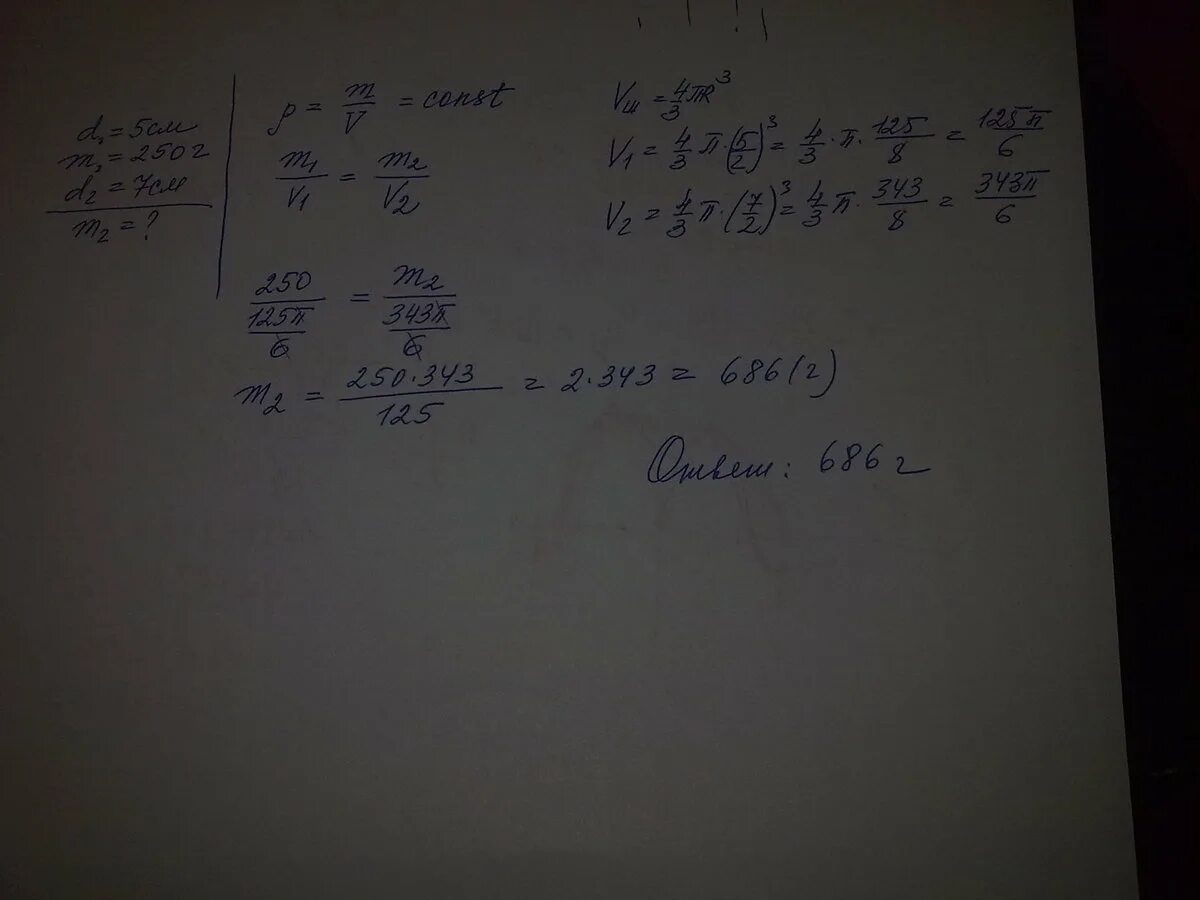 d₁ = 5см
m₁ = 250г
d₂ = 7см
m₂ = ?
ρ = m/V = const
m₁/V₁ = m₂/V₂
Vш = 4/3 πR³
V₁ = 4/3 π · (5/2)³ = 4/3 · π · 125/8 = 125π/6
V₂ = 4/3 π · (7/2)³ = 4/3 π · 343/8 = 343π/6
250/(125π/6) = m₂/(343π/6)
m₂ = 250·343/125 = 2·343 = 686 (г)
Ответ: 686 г